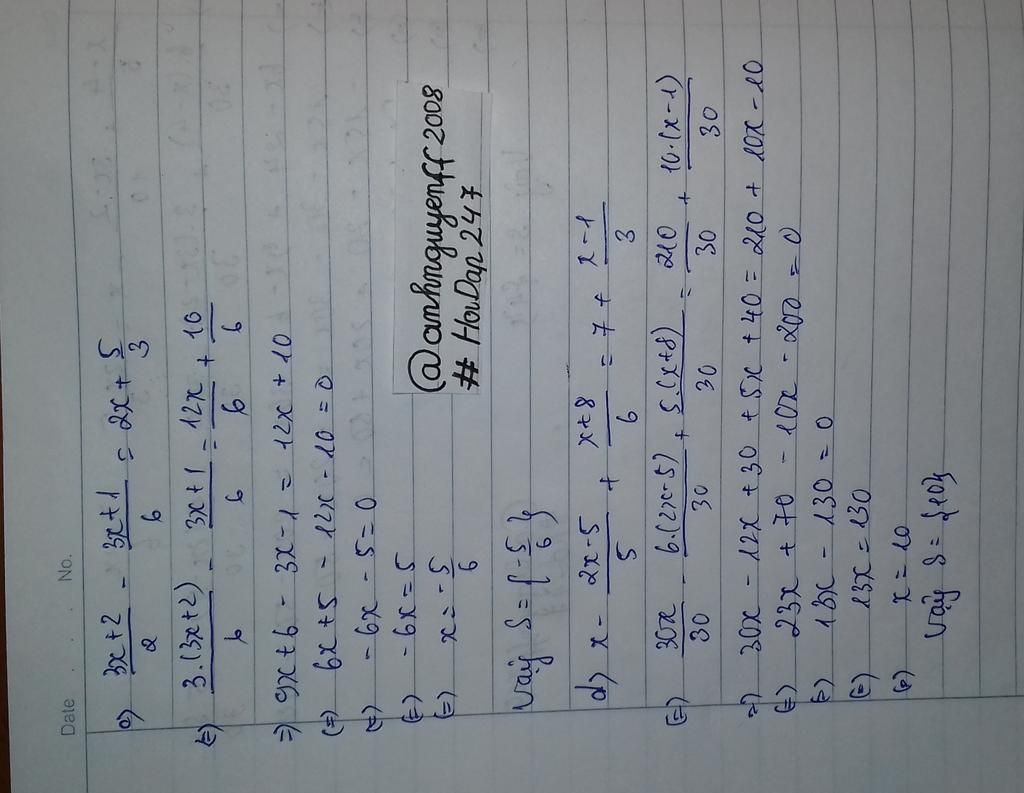 Date . . No.
a) \frac{3x+2}{2} - \frac{3x+1}{6} = 2x + \frac{5}{3}
(=) \frac{3.(3x+2)}{6} - \frac{3x+1}{6} = \frac{12x}{6} + \frac{10}{6}
=) 9x+6 - 3x-1 = 12x + 10
(=) 6x+5 - 12x - 10 = 0
(=) -6x - 5 = 0
(=) -6x = 5
(=) x = -\frac{5}{6}
Vậy S = {-\frac{5}{6}}
@anhnguyenff2008
# HoiDap247
d) x - \frac{2x-5}{5} + \frac{x+8}{6} = 7 + \frac{x-1}{3}
(=) \frac{30x}{30} - \frac{6.(2x-5)}{30} + \frac{5.(x+8)}{30} = \frac{210}{30} + \frac{10.(x-1)}{30}
=) 30x - 12x + 30 + 5x + 40 = 210 + 10x - 10
(=) 23x + 70 - 10x - 200 = 0
(=) 13x - 130 = 0
(=) 13x = 130
(=) x = 10
Vậy S = {10}